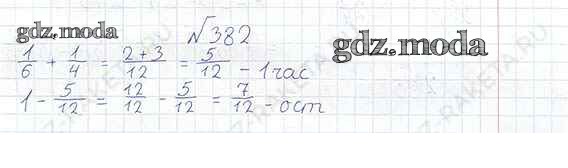 gdz.moda
√382
gdz.moda
1/6 + 1/4 = 2+3/12 = 5/12 - 1 час
1 - 5/12 = 12/12 - 5/12 = 7/12 - ост